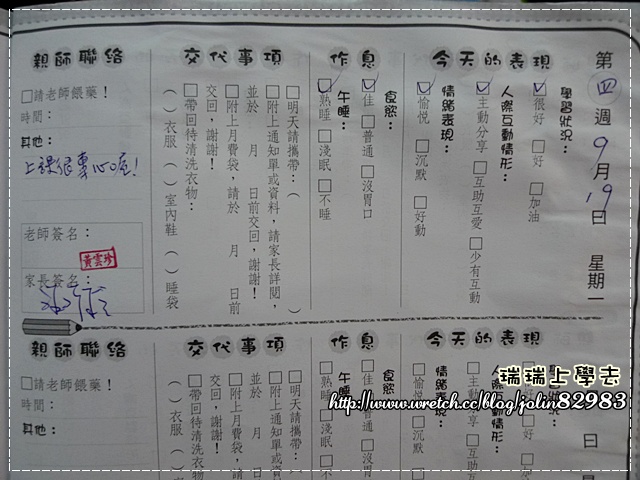 第四週 9月19日 星期一
今天的表現
學習狀況：
☑很好 □好 □加油
人際互動情形：
☑主動分享 □互助互愛 □少有互動
情緒表現：
☑愉悅 □沉默 □好動
作息
食慾：
☑佳 □普通 □沒胃口
午睡：
☑熟睡 □淺眠 □不睡
交代事項
□明天請攜帶：（ ）
□附上通知單或資料，請家長詳閱，
並於 月 日前交回，謝謝！
□附上月費袋，請於 月 日前
交回，謝謝！
□帶回待清洗衣物：
（ ）衣服（ ）室內鞋（ ）睡袋
親師聯絡
□請老師餵藥！
時間：
其他：
上課很專心喔！
老師簽名：
黃雲珍
家長簽名：
今天的表現
學習狀況：
好
人際互動情形：
□主動分享 □互助互
情緒表現：
□愉悅 □沉默
作息
食慾：
□佳 □普通 □沒胃
午睡：
□熟睡 □淺眠 □不
交代事項
□明天請攜帶：（
□附上通知單或資
並於 月 日
□附上月費袋，請
交回，謝謝！
□帶回待清洗衣物
（ ）衣服（ ）
親師聯絡
□請老師餵藥！
時間：
其他：
日 星
瑞瑞上學去
http://www.wretch.cc/blog/jolin82983